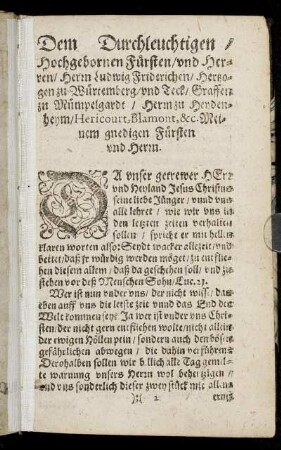 Dem Durchleuchtigen /
Hochgebornen Fürsten / vnd Her-
ren / Herrn Ludwig Friderichen / Hertzo-
gen zu Würtemberg / vnd Teck / Graffen
zu Mümpelgardt / Herrn zu Heyden-
heym / Hericourt, Blamont, &c. Mei-
nem gnedigen Fürsten
vnd Herrn.
DA vnser getrewer HErr
vnd Heyland Jesus Christus
seine liebe Jünger / vnnd vns
alle lehret / wie wir vns in
den letzten zeiten verhalten
sollen / spricht er mit hellen
klaren worten also: Seydt wacker allezeit / vnd
bettet / daß jr würdig werden möget / zu entflie-
hen diesem allem / daß da geschehen soll / vnd zu
stehen vor deß Menschen Sohn / Luc. 21.
Wer ist nun vnder vns / der nicht wiss / das
eben auff vns die letste zeit vnnd das End der
Welt kommen seye? Ja wer ist vnder vns Chri-
sten / der nicht gern entfliehen wolte / nicht allein
der ewigen Höllenpein / sondern auch den bösen
gefährlichen abwegen / die dahin verführen?
Derohalben sollen wir billich alle Tag gemel-
te warnung vnsers Herrn wol behertzigen /
vnd vns sonderlich dieser zwey stück mit allem
):( 2